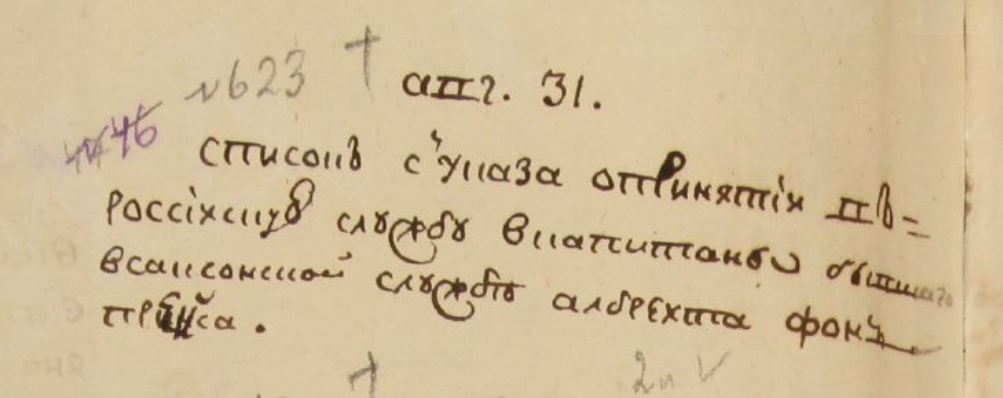 №623 †
апг. 31.
46
списокъ с'указа опринятіи въ=
россіискую службу вкапитаны бывшаго
всаксонской службѣ албрехта фонъ
преиса.